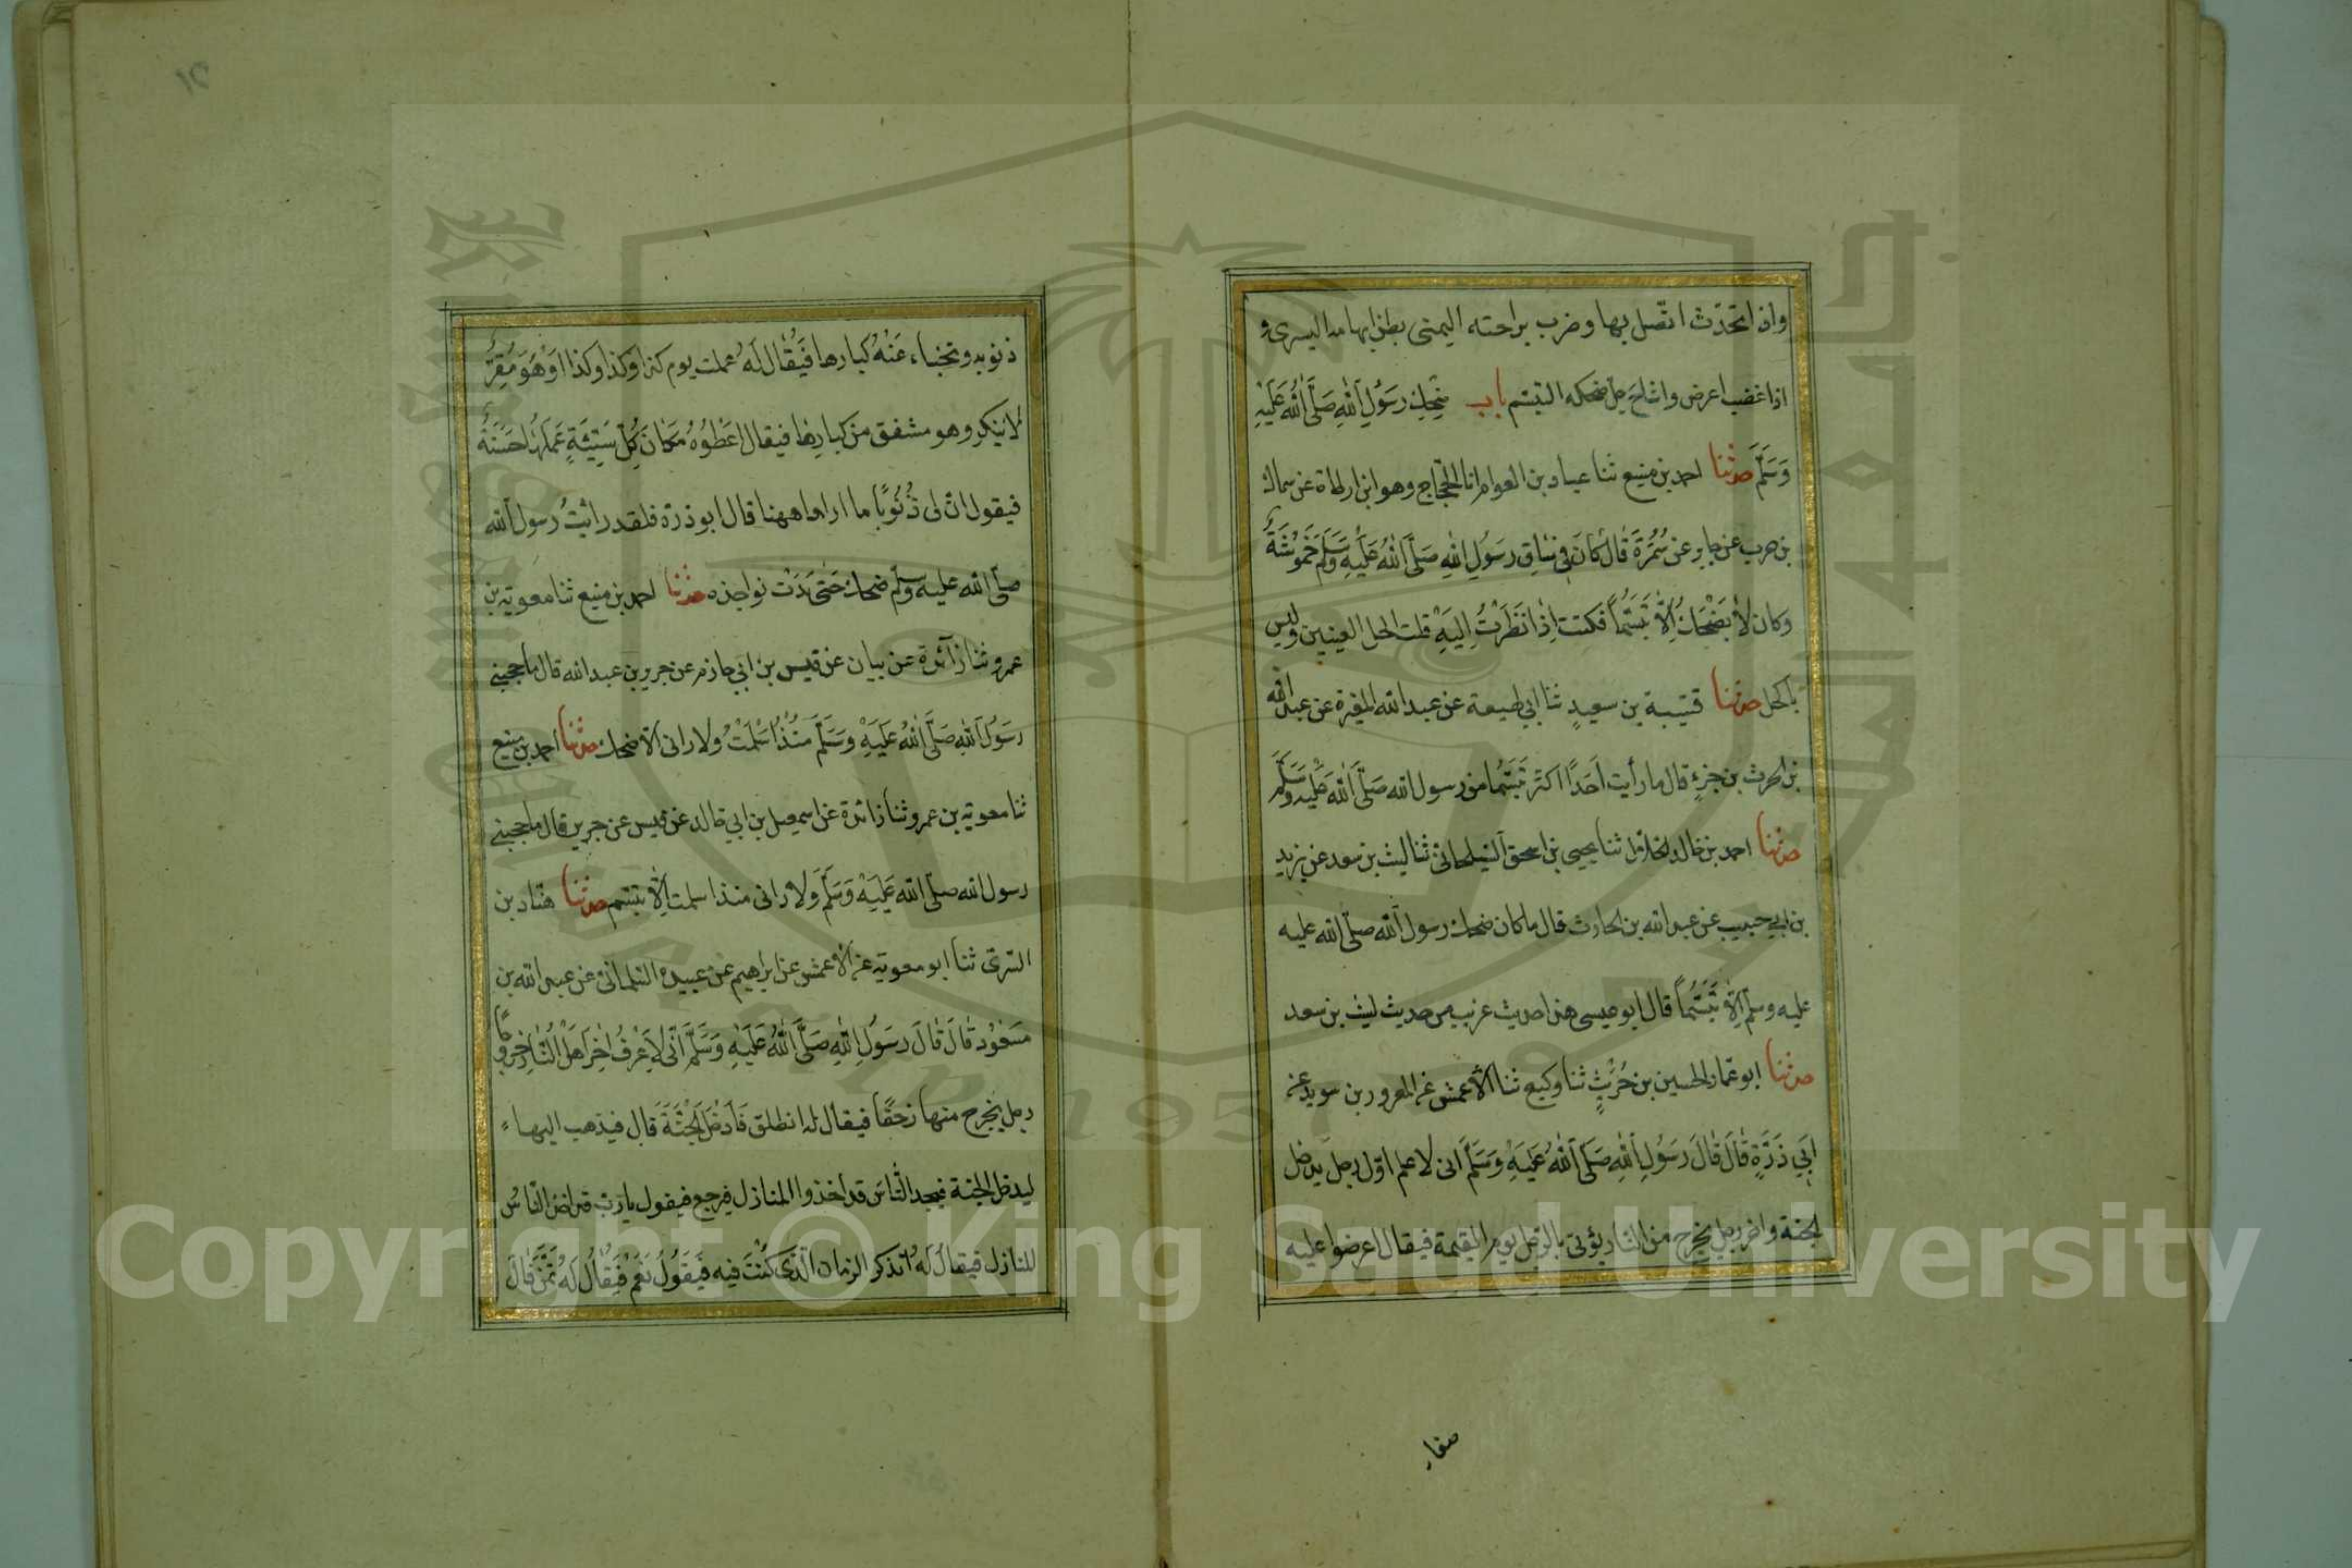 واذا تحدّث اتّصل بها وضرب براحته اليمنى بطن ابهامه اليسرى و
اذا غضب اعرض واشاح جلّ ضحكه التبسّم باب ضحك رَسُولِ اللهِ صَلَّى اللهُ عَلَيْهِ
وَسَلَّمَ حدثنا احمد بن منيع ثنا عباد بن العوام انا الحجّاج وهو ابن ارطاة عن سماك
بن حرب عن جابر عن سَمُرَةَ قَالَ كَانَ فِي سَاقِ رَسُولِ اللهِ صَلَّى اللهُ عَلَيْهِ وَسَلَّمَ حَمُوْشَةٌ
وكان لَا يَضْحَكُ اِلَّا تَبَسُّمًا فكنت اِذَا نَظَرْتُ اِلَيْهِ قلت اكحل العينين وليس
باكحل حدثنا قتيبة بن سعيدٍ ثنا ابي طيعة عن عبد الله المغيرة عن عبد الله
بن الحرث بن جزءٍ قال ما رأيت اَحَدًا اكثر تَبَسُّمًا من رسول الله صَلَّى اللهُ عَلَيْهِ وَسَلَّمَ
حدثنا احمد بن خالد الخلال ثنا يحيى بن اسحق السيلحانى ثنا ليث بن سعد عن يزيد
بن ابي حبيب عن عبد الله بن الحارث قال ما كان ضحك رسول الله صلّى الله عليه
عليه وسلّم اِلَّا تَبَسُّمًا قال ابو عيسى هذا حديث غريب من حديث ليث بن سعد
حدثنا ابو عمار الحسين بن حُرَيْثٍ ثنا وكيع ثنا الاعمش عن المعرور بن سويد عن
اَبِي ذَرَّةٍ قَالَ قَالَ رَسُولِ اللهِ صَلَّى اللهُ عَلَيْهِ وَسَلَّمَ انى لاعلم اوّل رجل يدخل
الجنة واخر رجل يخرج من النّار يؤتى بالرّجل يوم القيمة فيقال اعرضوا عليه
صغار
ذنوبه وتخباء عَنْهُ كبارها فَيُقَال لَهُ عملت يوم كذا وكذا وكذا اَوْ هُوَ مُقِرٌّ
لا ينكر وهو مشفق من كبارِهَا فيقال اَعْطُوْهُ مَكَانَ كُلِّ سَيِّئَةٍ عَمِلَهَا حَسَنَةً
فيقول انّ لى ذُنُوبًا ما اراها ههنا قال ابو ذرّة فلقد رائيتُ رسول الله
صلّى الله عليه وسلّم ضحك حَتَّى بَدَتْ نواجذه حدثنا احمد بن منيع ثنا معوية بن
عمرو ثنا زآئدة عن بيان عن قيس بن ابي حازم عن جرير بن عبد الله قال ما حجبنى
رَسُولُ اللهِ صَلَّى اللهُ عَلَيْهِ وَسَلَّمَ مُنْذُ اَسْلَمْتُ ولا رانى الّا ضحك حدثنا احمد بن منيع
ثنا معوية بن عمرو ثنا زائدة عن اسمعيل بن ابي خالد عن قيس عن جرير قال ما حجبنى
رسول الله صلّى الله عَلَيْهِ وَسَلَّمَ وَلا رانى منذ اسلمت اِلَّا تبسّم حدثنا هنّاد بن
السّرىّ ثنا ابو معوية عن الاعمش عن ابراهيم عن عبيدة السّلمانىّ عن عبد الله بن
مَسْعُوْد قَالَ قَالَ رَسُولِ اللهِ صَلَّى اللهُ عَلَيْهِ وَسَلَّمَ اَنّى لَاَعْرِفُ اٰخِرَ اَهْلِ النَّارِ خُرُوجًا
رجل يخرج منها زَحْفًا فيقال له انطلق فَادْخُلِ الْجَنَّةَ قَال فيذهب اليها
ليدخل الجنة فيجد النّاس قد اخذوا المنازل فيرجع فيقول يا رَبّ قد اخذ النّاسُ
المنازل فيقالُ لَهُ اتذكر الزمان الَّذى كُنْتَ فيه فَيَقُولُ نَعَمْ فَيُقَالُ لَهُ تَمَنَّ قَالَ
Copyright © King Saud University
1957